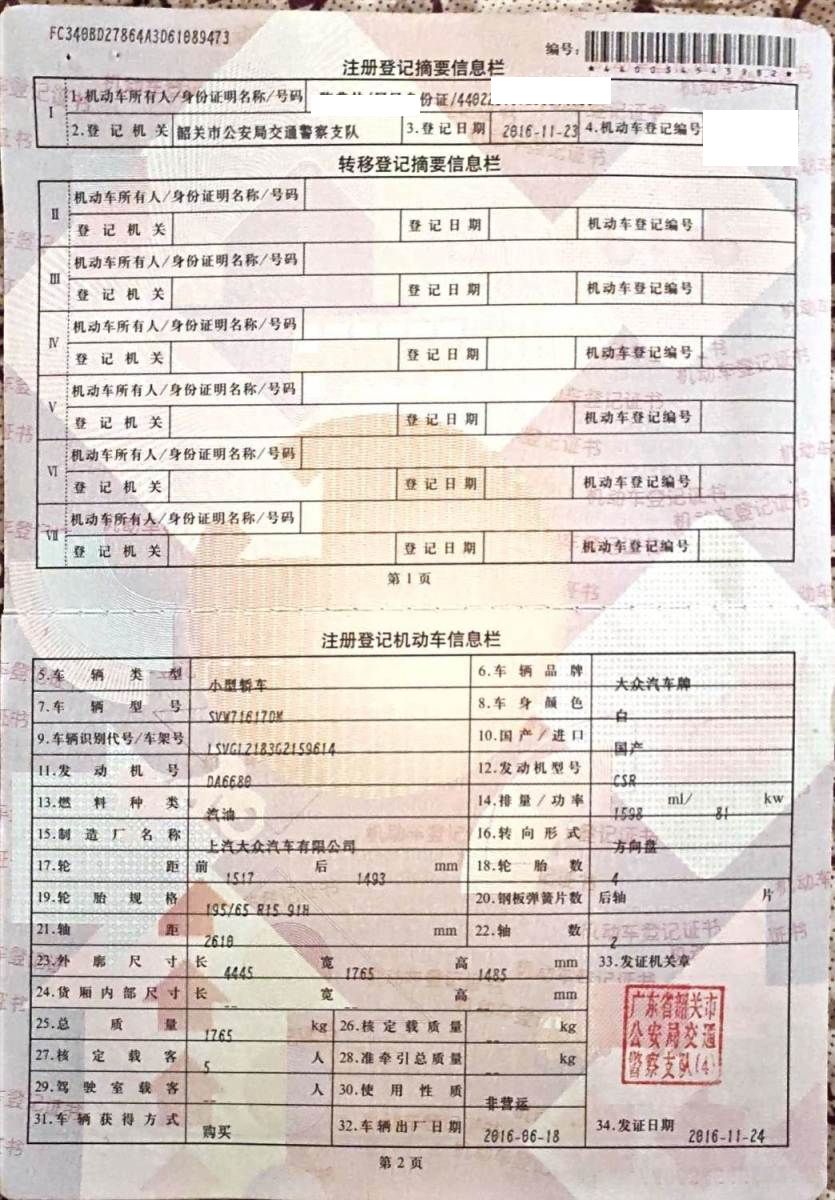 FC340BD27864A3D61089473
编号:
*440034543982*
注册登记摘要信息栏
I 1.机动车所有人/身份证明名称/号码 身份证/44022
2.登记机关 韶关市公安局交通警察支队 3.登记日期 2016-11-23 4.机动车登记编号
转移登记摘要信息栏
II 机动车所有人/身份证明名称/号码
登记机关 登记日期 机动车登记编号
III 机动车所有人/身份证明名称/号码
登记机关 登记日期 机动车登记编号
IV 机动车所有人/身份证明名称/号码
登记机关 登记日期 机动车登记编号
V 机动车所有人/身份证明名称/号码
登记机关 登记日期 机动车登记编号
VI 机动车所有人/身份证明名称/号码
登记机关 登记日期 机动车登记编号
VII 机动车所有人/身份证明名称/号码
登记机关 登记日期 机动车登记编号
第1页
注册登记机动车信息栏
5.车辆类型 小型轿车 6.车辆品牌 大众汽车牌
7.车辆型号 SVW71617DM 8.车身颜色 白
9.车辆识别代号/车架号 LSVGL2183G2159614 10.国产/进口 国产
11.发动机号 DA6680 12.发动机型号 CSR
13.燃料种类 汽油 14.排量/功率 1598 ml/ 81 kw
15.制造厂名称 上汽大众汽车有限公司 16.转向形式 方向盘
17.轮距 前 1517 后 1493 mm 18.轮胎数 4
19.轮胎规格 195/65 R15 91H 20.钢板弹簧片数 后轴 片
21.轴距 2610 mm 22.轴数 2
23.外廓尺寸 长 4445 宽 1765 高 1485 mm 33.发证机关章
24.货厢内部尺寸 长 -- 宽 -- 高 -- mm
广东省韶关市
公安局交通
警察支队(4)
25.总质量 1765 kg 26.核定载质量 -- kg
27.核定载客 5 人 28.准牵引总质量 -- kg
29.驾驶室载客 -- 人 30.使用性质 非营运
31.车辆获得方式 购买 32.车辆出厂日期 2016-06-18 34.发证日期 2016-11-24
第2页